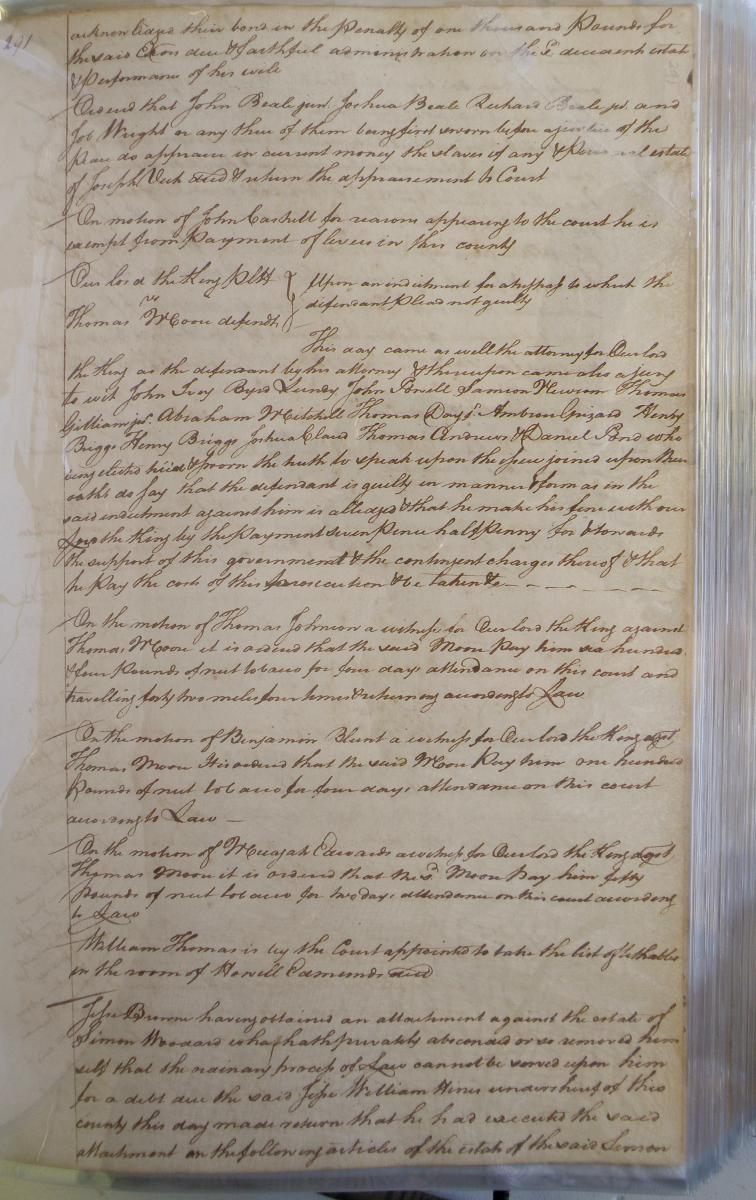 291
acknowledged their bond in the Penalty of one thousand Pounds for
the said Exors due & faithful administration on the sd decedents estate
& Performance of his will
Ordered that John Beale junr Joshua Beale Richard Beale jr and
Job Wright or any three of them being first sworn before a justice of the
Peace do appraise in current money the slaves if any & Personal estate
of Joseph Vick decd & return the appraisement to Court
On motion of John Gaskell for reasons appearing to the court he is
exempt from Payment of levies in this county
Our lord the King Pltf
vs
Thomas Moore defendt
Upon an indictment for a trespass to which the
defendant Plead not guilty
This day came as well the attorney for Our lord
the King as the defendant by his attorney & thereupon came also a jury
to wit John Ivey Byrd Lundy John Powell Samson Newsom Thomas
Gilliam jr. Abraham Mitchell Thomas Day sr Ambrose Grizard Henry
Briggs Henry Briggs Joshua Claud Thomas Andrews & Daniel Pond who
being elected tried & sworn the truth to speak upon the issue joined upon their
oaths do say that the defendant is guilty in manner & form as in the
said indictment against him is alledged & that he make his fine with our
Lord the King by the Payment seven Pence half Penny for & towards
the support of this government & the contingent charges thereof & that
he Pay the costs of this Prosecution & be taken &c
On the motion of Thomas Johnson a witness for Our lord the King against
Thomas Moore it is ordered that the said Moore Pay him six hundred
& four Pounds of nett tobacco for four days attendance on this court and
travelling forty two miles four times & returning according to Law
On the motion of Benjamin Blunt a witness for Our lord the King agst
Thomas Moore It is ordered that the said Moore Pay him one hundred
Pounds of nett tobacco for four days attendance on this court
according to Law
On the motion of Micajah Edwards a witness for Our lord the King agst
Thomas Moore it is ordered that the sd Moore Pay him fifty
Pounds of nett tobacco for two days attendance on this court according
to Law
William Thomas is by the Court appointed to take the list of tithables
in the room of Howell Edmunds decd
Jesse Browne having obtained an attachment against the estate of
Simon Woodard who hath privately absconded or so removed him
self that the ordinary process of Law cannot be served upon him
for a debt due the said Jesse William Hines undersherif of this
county this day made return that he had executed the said
attachment on the following articles of the estate of the said Simon